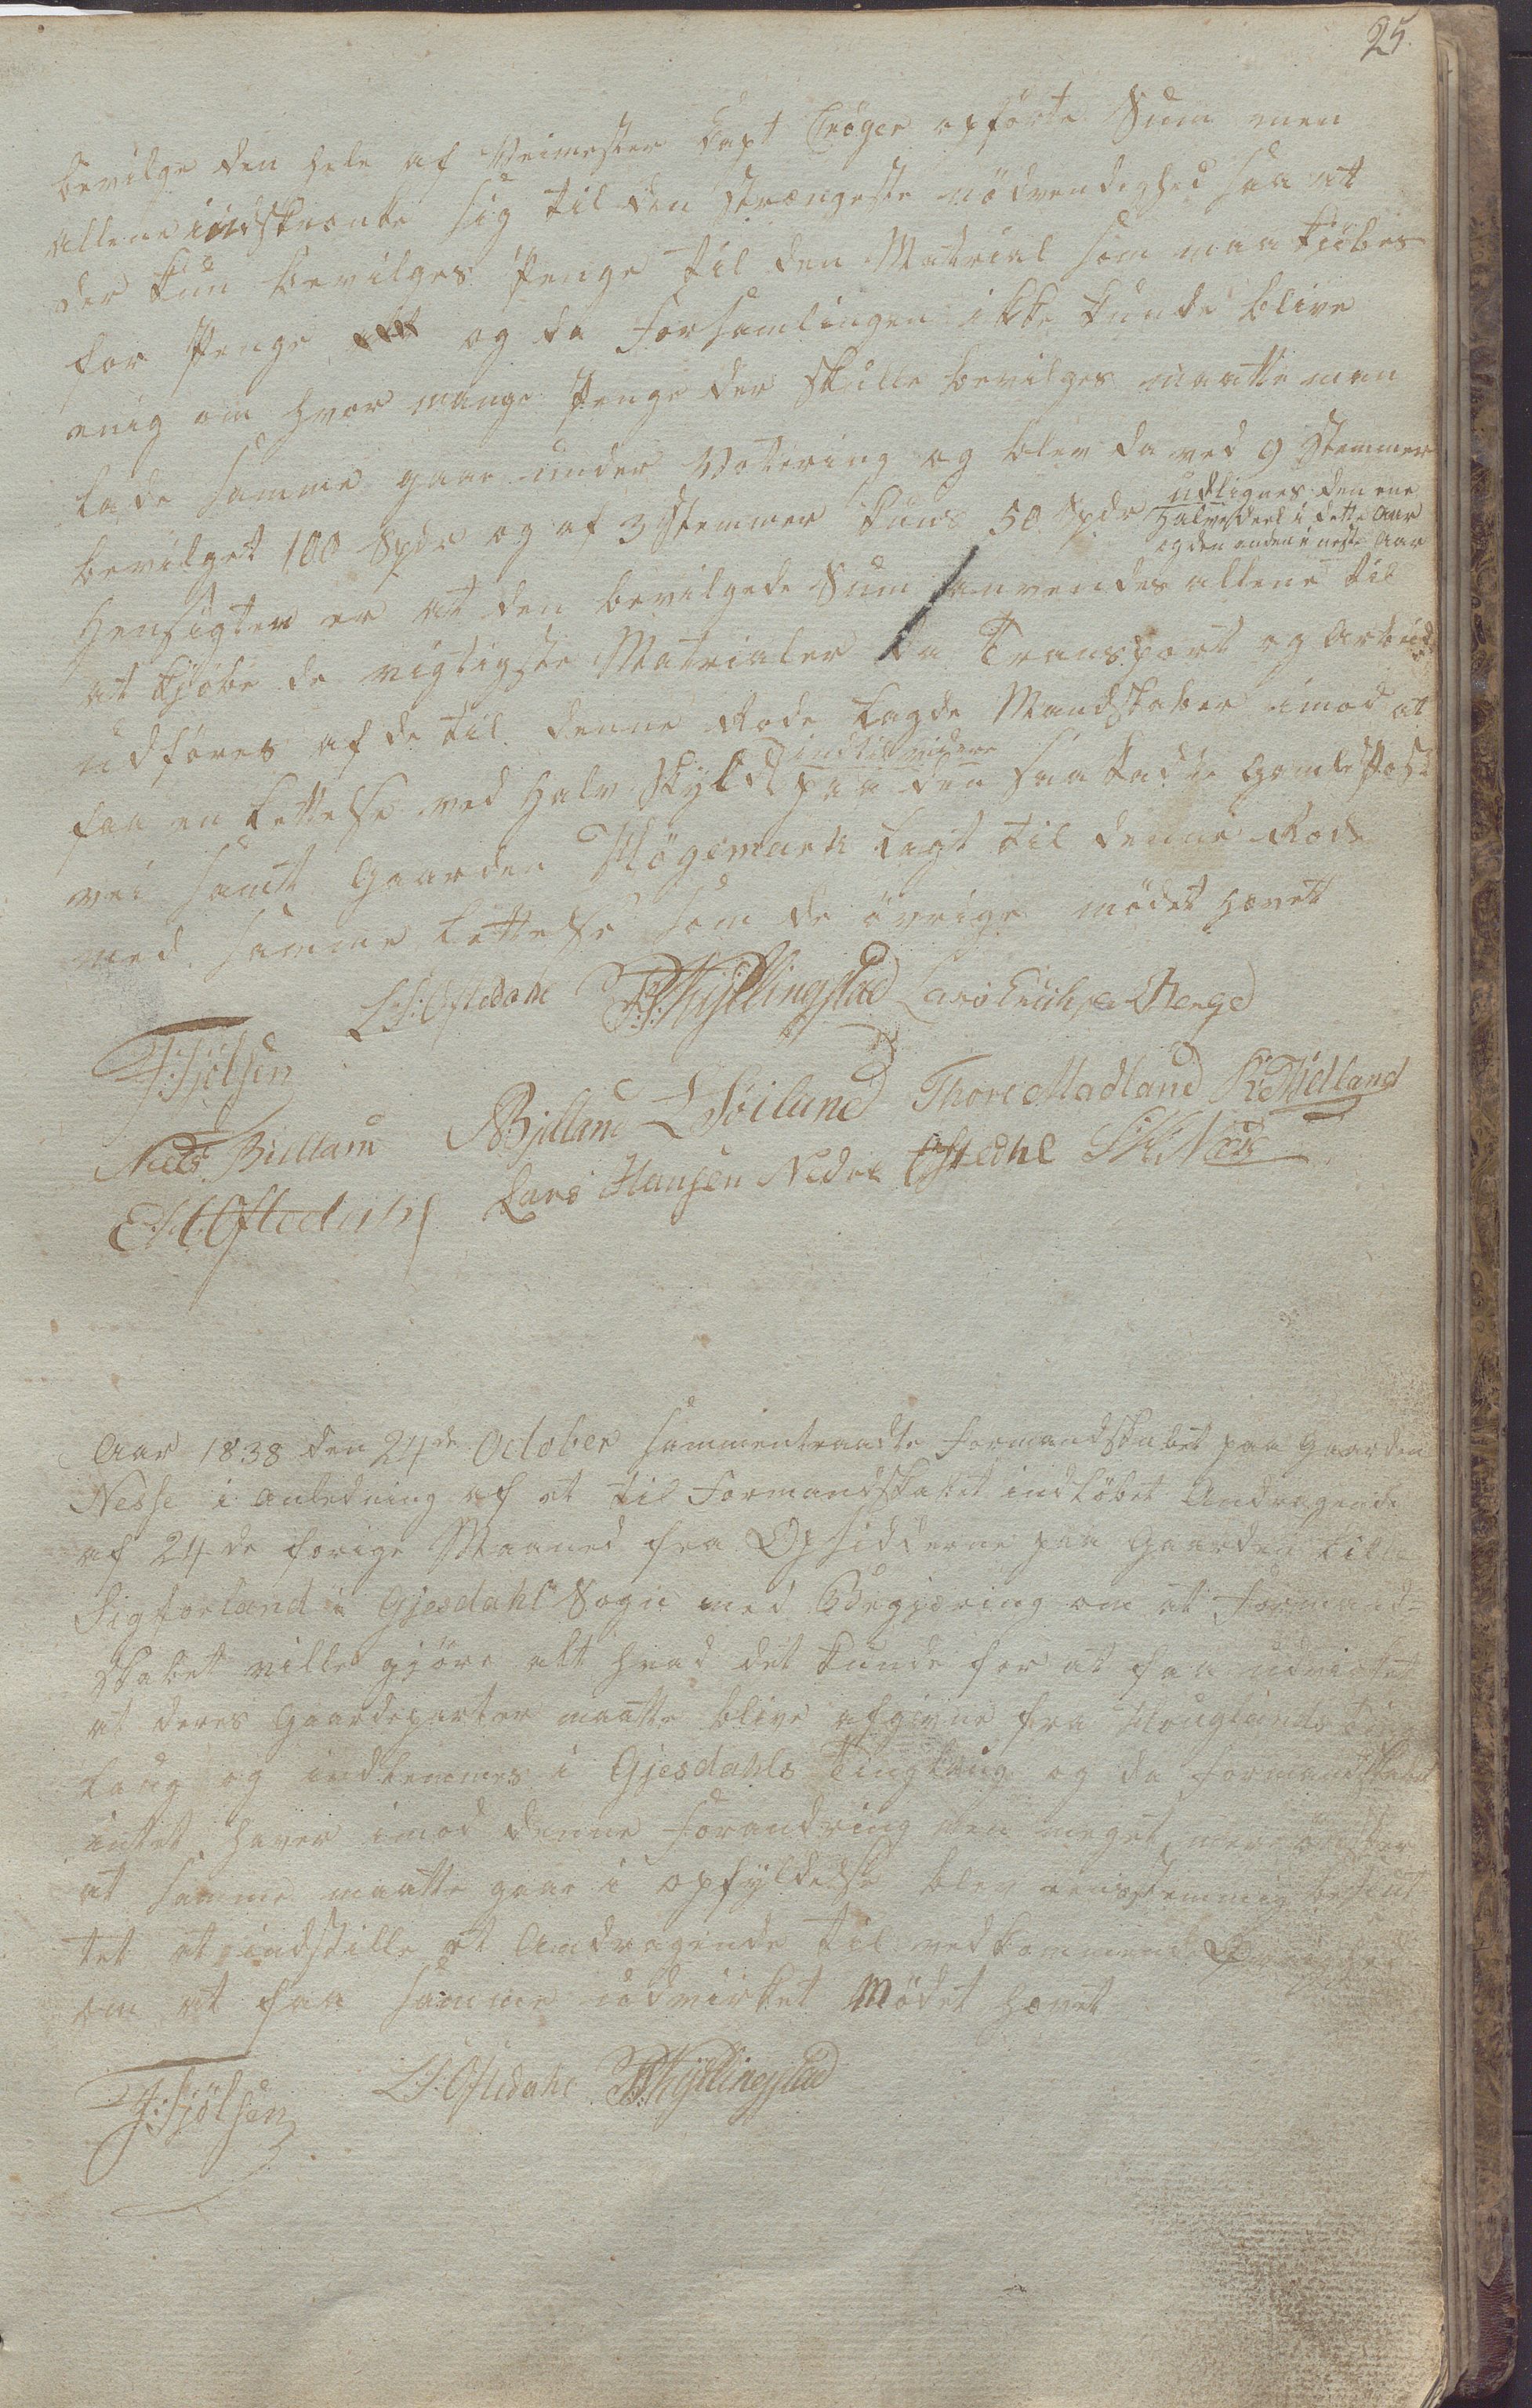 25.
bevilge den hele af Veimester Capt Crøger opførte Sum men
allene indskrenke sig til den strængeste nødvendighed saa at
der kun bevilges Penge til den Matrial som maa kjøbes
for Penge og da Forsamlingen ikke kunde blive
enig om hvor mange Penge der skulle bevilges maatte man
lade samme gaae under Votering og blev da ved 9 Stemmer
bevilget 100 Spdr og af 3 Stemmer kuns 50 Spdr udlignes den ene
halvedeel i dette Aar
og den anden i neste Aar
Hensigten er at den bevilgede Sum anvendes allene til
at kjøbe de vigtigste Matrialer da Transport og Arbeide
udføres af de til denne Rode lagde Mandskaber imod at
indtil videre
faa en Lettelse ved halv Skyld paa den saa kadte Gamle Post
vei samt Gaarden Høgemark lagt til denne Rode
med samme Lettelse som de øvrige mødet hævet
L.S. Oftedahl T.P. Kyllingstad Lars Erichsen
T. Fjölsen
Niels Bielland Bjelland Söiland Thore Madland
E.H. Oftedahl Lars Hansen Nedre Oftedahl S.K. Næss
Aar 1838 den 24de October sammentraadte Formandskabet paa Gaarden
Nesse i Anledning af et til Formandskabet indløbet Andragende
af 24de forige Maaned fra Opsidderne paa Gaarden Lille
Sigforland i Gjesdahls Sogn med Begjæring om at Formand=
skabet ville gjøre alt hvad det kunde for at faa udvirket
at deres Gaardeparter maatte blive afgivne fra Houglands Ting
laug og indlemmes i Gjesdahls Tinglaug og da Formandskabet
intet haver imod denne Forandring men meget mere ønsker
at samme maatte gaae i opfyldelse blev eenstemmig beslut
tet at indstille et Andragende til vedkommende Øvrighed
om at faa samme udvirket Mödet hævet
T. Fjölsen L.S. Oftedahl T.P. Kyllingstad